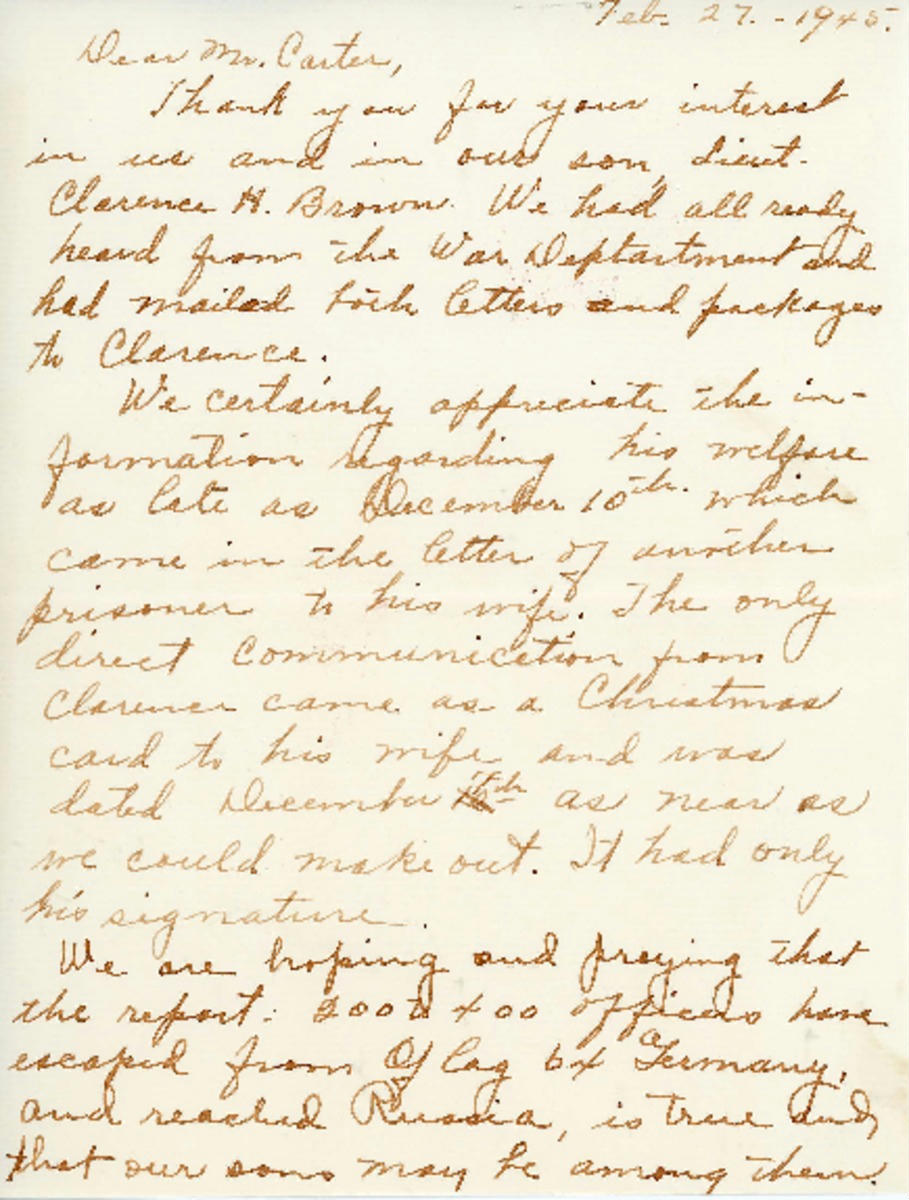 Feb. 27. - 1945.
Dear Mr. Carter,
Thank you for your interest
in us and in our son, Lieut.
Clarence H. Brown. We had all ready
heard from the War Deptartment and
had mailed both letters and packages
to Clarence.
We certainly appreciate the in-
formation regarding his welfare
as late as December 10th. which
came in the letter of another
prisoner to his wife. The only
direct communication from
Clarence came as a Christmas
card to his wife and was
dated December as near as
we could make out. It had only
his signature.
We are hoping and praying that
the report: 200 to 400 officers have
escaped from Oflag 64 Germany,
and reached Russia, is true and,
that our sons may be among them.